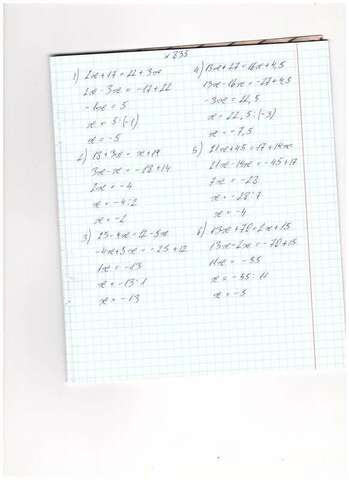 № 835
1) 2x+17=22+3x
2x-3x=-17+22
-1x=5
x=5:(-1)
x=-5
2) 18+3x=x+14
3x-x=-18+14
2x=-4
x=-4:2
x=-2
3) 25-4x=12-5x
-4x+5x=-25+12
1x=-13
x=-13:1
x=-13
4) 13x+27=16x+4,5
13x-16x=-27+4,5
-3x=22,5
x=22,5:(-3)
x=-7,5
5) 21x+45=17+14x
21x-14x=-45+17
7x=-28
x=-28:7
x=-4
6) 13x+70=2x+15
13x-2x=-70+15
11x=-55
x=-55:11
x=-5